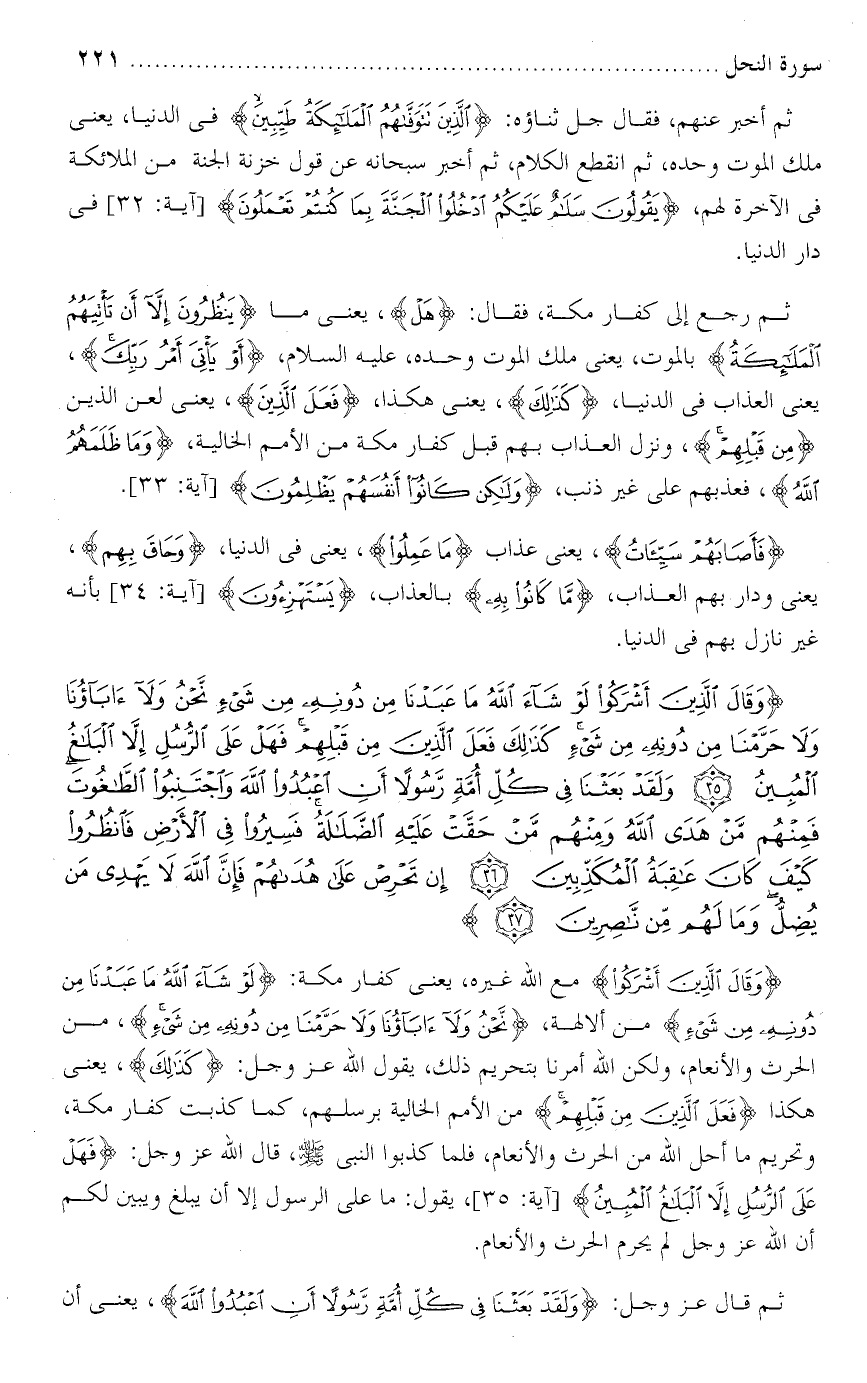 سورة النحل ........................................................................ ٢٢١
ثم أخبر عنهم، فقال جل ثناؤه: ﴿ٱلَّذِينَ تَتَوَفَّىٰهُمُ ٱلْمَلَـٰٓئِكَةُ طَيِّبِينَ ۙ﴾ فى الدنيا، يعنى
ملك الموت وحده، ثم انقطع الكلام، ثم أخبر سبحانه عن قول خزنة الجنة من الملائكة
فى الآخرة لهم، ﴿يَقُولُونَ سَلَـٰمٌ عَلَيْكُمُ ٱدْخُلُوا۟ ٱلْجَنَّةَ بِمَا كُنتُمْ تَعْمَلُونَ﴾ [آية: ٣٢] فى
دار الدنيا.
ثم رجع إلى كفار مكة، فقال: ﴿هَلْ﴾، يعنى ما ﴿يَنظُرُونَ إِلَّآ أَن تَأْتِيَهُمُ
ٱلْمَلَـٰٓئِكَةُ﴾ بالموت، يعنى ملك الموت وحده، عليه السلام، ﴿أَوْ يَأْتِىَ أَمْرُ رَبِّكَ ۚ﴾،
يعنى العذاب فى الدنيا، ﴿كَذَٰلِكَ﴾، يعنى هكذا، ﴿فَعَلَ ٱلَّذِينَ﴾، يعنى لعن الذين
﴿مِن قَبْلِهِمْ ۚ﴾، ونزل العذاب بهم قبل كفار مكة من الأمم الخالية، ﴿وَمَا ظَلَمَهُمُ
ٱللَّهُ﴾، فعذبهم على غير ذنب، ﴿وَلَـٰكِن كَانُوٓا۟ أَنفُسَهُمْ يَظْلِمُونَ﴾ [آية: ٣٣].
﴿فَأَصَابَهُمْ سَيِّـَٔاتُ﴾، يعنى عذاب ﴿مَا عَمِلُوا۟﴾، يعنى فى الدنيا، ﴿وَحَاقَ بِهِم﴾،
يعنى ودار بهم العذاب، ﴿مَّا كَانُوا۟ بِهِۦ﴾ بالعذاب، ﴿يَسْتَهْزِءُونَ﴾ [آية: ٣٤] بأنه
غير نازل بهم فى الدنيا.
﴿وَقَالَ ٱلَّذِينَ أَشْرَكُوا۟ لَوْ شَآءَ ٱللَّهُ مَا عَبَدْنَا مِن دُونِهِۦ مِن شَىْءٍ نَّحْنُ وَلَآ ءَابَآؤُنَا
وَلَا حَرَّمْنَا مِن دُونِهِۦ مِن شَىْءٍ ۚ كَذَٰلِكَ فَعَلَ ٱلَّذِينَ مِن قَبْلِهِمْ ۚ فَهَلْ عَلَى ٱلرُّسُلِ إِلَّا ٱلْبَلَـٰغُ
ٱلْمُبِينُ ٣٥ وَلَقَدْ بَعَثْنَا فِى كُلِّ أُمَّةٍ رَّسُولًا أَنِ ٱعْبُدُوا۟ ٱللَّهَ وَٱجْتَنِبُوا۟ ٱلطَّـٰغُوتَ ۖ
فَمِنْهُم مَّنْ هَدَى ٱللَّهُ وَمِنْهُم مَّنْ حَقَّتْ عَلَيْهِ ٱلضَّلَـٰلَةُ ۚ فَسِيرُوا۟ فِى ٱلْأَرْضِ فَٱنظُرُوا۟
كَيْفَ كَانَ عَـٰقِبَةُ ٱلْمُكَذِّبِينَ ٣٦ إِن تَحْرِصْ عَلَىٰ هُدَىٰهُمْ فَإِنَّ ٱللَّهَ لَا يَهْدِى مَن
يُضِلُّ ۖ وَمَا لَهُم مِّن نَّـٰصِرِينَ ٣٧﴾
﴿وَقَالَ ٱلَّذِينَ أَشْرَكُوا۟﴾ مع الله غيره، يعنى كفار مكة: ﴿لَوْ شَآءَ ٱللَّهُ مَا عَبَدْنَا مِن
دُونِهِۦ مِن شَىْءٍ﴾ من ألالهة، ﴿نَّحْنُ وَلَآ ءَابَآؤُنَا وَلَا حَرَّمْنَا مِن دُونِهِۦ مِن شَىْءٍ ۚ﴾، من
الحرث والأنعام، ولكن الله أمرنا بتحريم ذلك، يقول الله عز وجل: ﴿كَذَٰلِكَ﴾، يعنى
هكذا ﴿فَعَلَ ٱلَّذِينَ مِن قَبْلِهِمْ ۚ﴾ من الأمم الخالية برسلهم، كما كذبت كفار مكة،
وتحريم ما أحل الله من الحرث والأنعام، فلما كذبوا النبى ﷺ، قال الله عز وجل: ﴿فَهَلْ
عَلَى ٱلرُّسُلِ إِلَّا ٱلْبَلَـٰغُ ٱلْمُبِينُ﴾ [آية: ٣٥]، يقول: ما على الرسول إلا أن يبلغ ويبين لكم
أن الله عز وجل لم يحرم الحرث والأنعام.
ثم قال عز وجل: ﴿وَلَقَدْ بَعَثْنَا فِى كُلِّ أُمَّةٍ رَّسُولًا أَنِ ٱعْبُدُوا۟ ٱللَّهَ﴾، يعنى أن